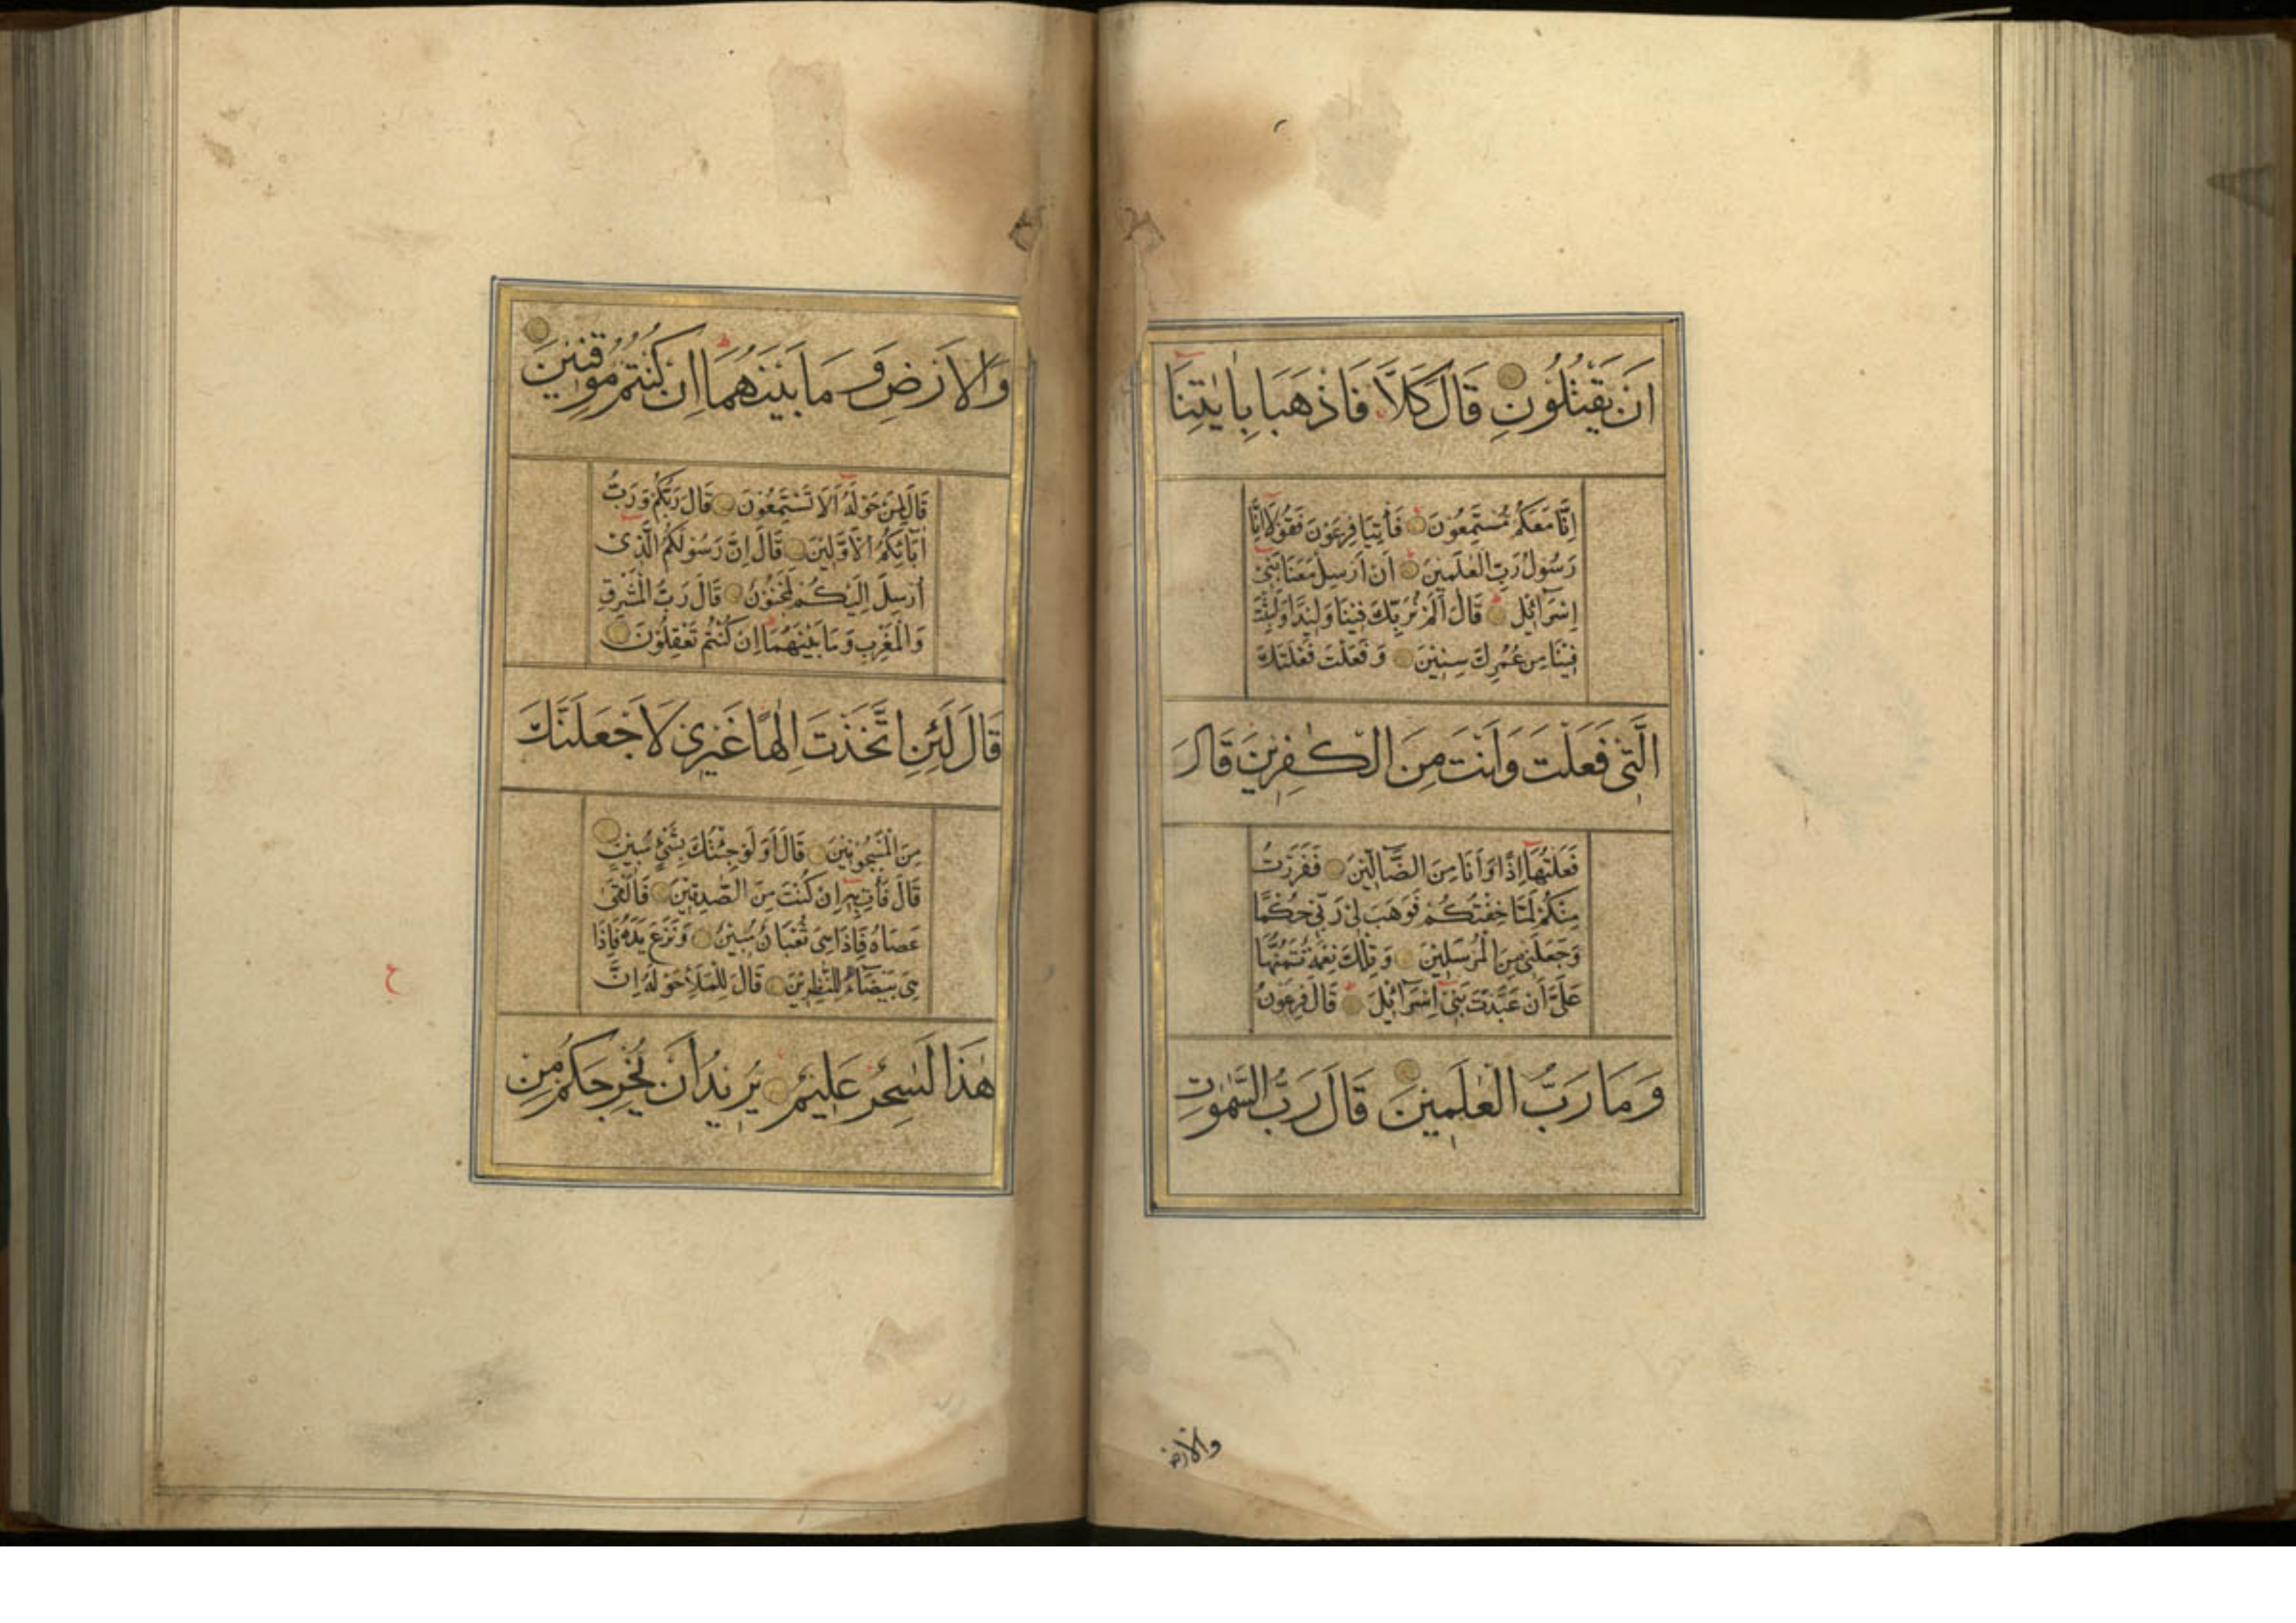 اَنْ يَقْتُلُونِ قَالَ كَلَّا فَاذْهَبَا بِاٰيٰتِنَا
اِنَّا مَعَكُمْ مُسْتَمِعُوْنَ فَأْتِيَا فِرْعَوْنَ فَقُوْلَا اِنَّا
رَسُوْلُ رَبِّ الْعٰلَمِيْنَ اَنْ اَرْسِلْ مَعَنَا بَنِيْ
اِسْرَآئِيْلَ قَالَ اَلَمْ نُرَبِّكَ فِيْنَا وَلِيْدًا وَلَبِثْتَ
فِيْنَا مِنْ عُمُرِكَ سِنِيْنَ وَفَعَلْتَ فَعْلَتَكَ
الَّتِيْ فَعَلْتَ وَاَنْتَ مِنَ الْكٰفِرِيْنَ قَالَ
فَعَلْتُهَا اِذًا وَاَنَا مِنَ الضَّآلِّيْنَ فَفَرَرْتُ
مِنْكُمْ لَمَّا خِفْتُكُمْ فَوَهَبَ لِيْ رَبِّيْ حُكْمًا
وَجَعَلَنِيْ مِنَ الْمُرْسَلِيْنَ وَتِلْكَ نِعْمَةٌ تَمُنُّهَا
عَلَيَّ اَنْ عَبَّدْتَ بَنِيْ اِسْرَآئِيْلَ قَالَ فِرْعَوْنُ
وَمَا رَبُّ الْعٰلَمِيْنَ قَالَ رَبُّ السَّمٰوٰتِ
والارض
وَالْاَرْضِ وَمَا بَيْنَهُمَا اِنْ كُنْتُمْ مُوْقِنِيْنَ
قَالَ لِمَنْ حَوْلَهُ اَلَا تَسْتَمِعُوْنَ قَالَ رَبُّكُمْ وَرَبُّ
اٰبَآئِكُمُ الْاَوَّلِيْنَ قَالَ اِنَّ رَسُوْلَكُمُ الَّذِيْ
اُرْسِلَ اِلَيْكُمْ لَمَجْنُوْنٌ قَالَ رَبُّ الْمَشْرِقِ
وَالْمَغْرِبِ وَمَا بَيْنَهُمَا اِنْ كُنْتُمْ تَعْقِلُوْنَ
قَالَ لَئِنِ اتَّخَذْتَ اِلٰهًا غَيْرِيْ لَاَجْعَلَنَّكَ
مِنَ الْمَسْجُوْنِيْنَ قَالَ اَوَلَوْ جِئْتُكَ بِشَيْءٍ مُبِيْنٍ
قَالَ فَأْتِ بِهِ اِنْ كُنْتَ مِنَ الصّٰدِقِيْنَ فَاَلْقٰى
عَصَاهُ فَاِذَا هِيَ ثُعْبَانٌ مُبِيْنٌ وَنَزَعَ يَدَهُ فَاِذَا
هِيَ بَيْضَآءُ لِلنّٰظِرِيْنَ قَالَ لِلْمَلَاِ حَوْلَهُ اِنَّ
هٰذَا لَسٰحِرٌ عَلِيْمٌ يُرِيْدُ اَنْ يُخْرِجَكُمْ مِنْ
ح